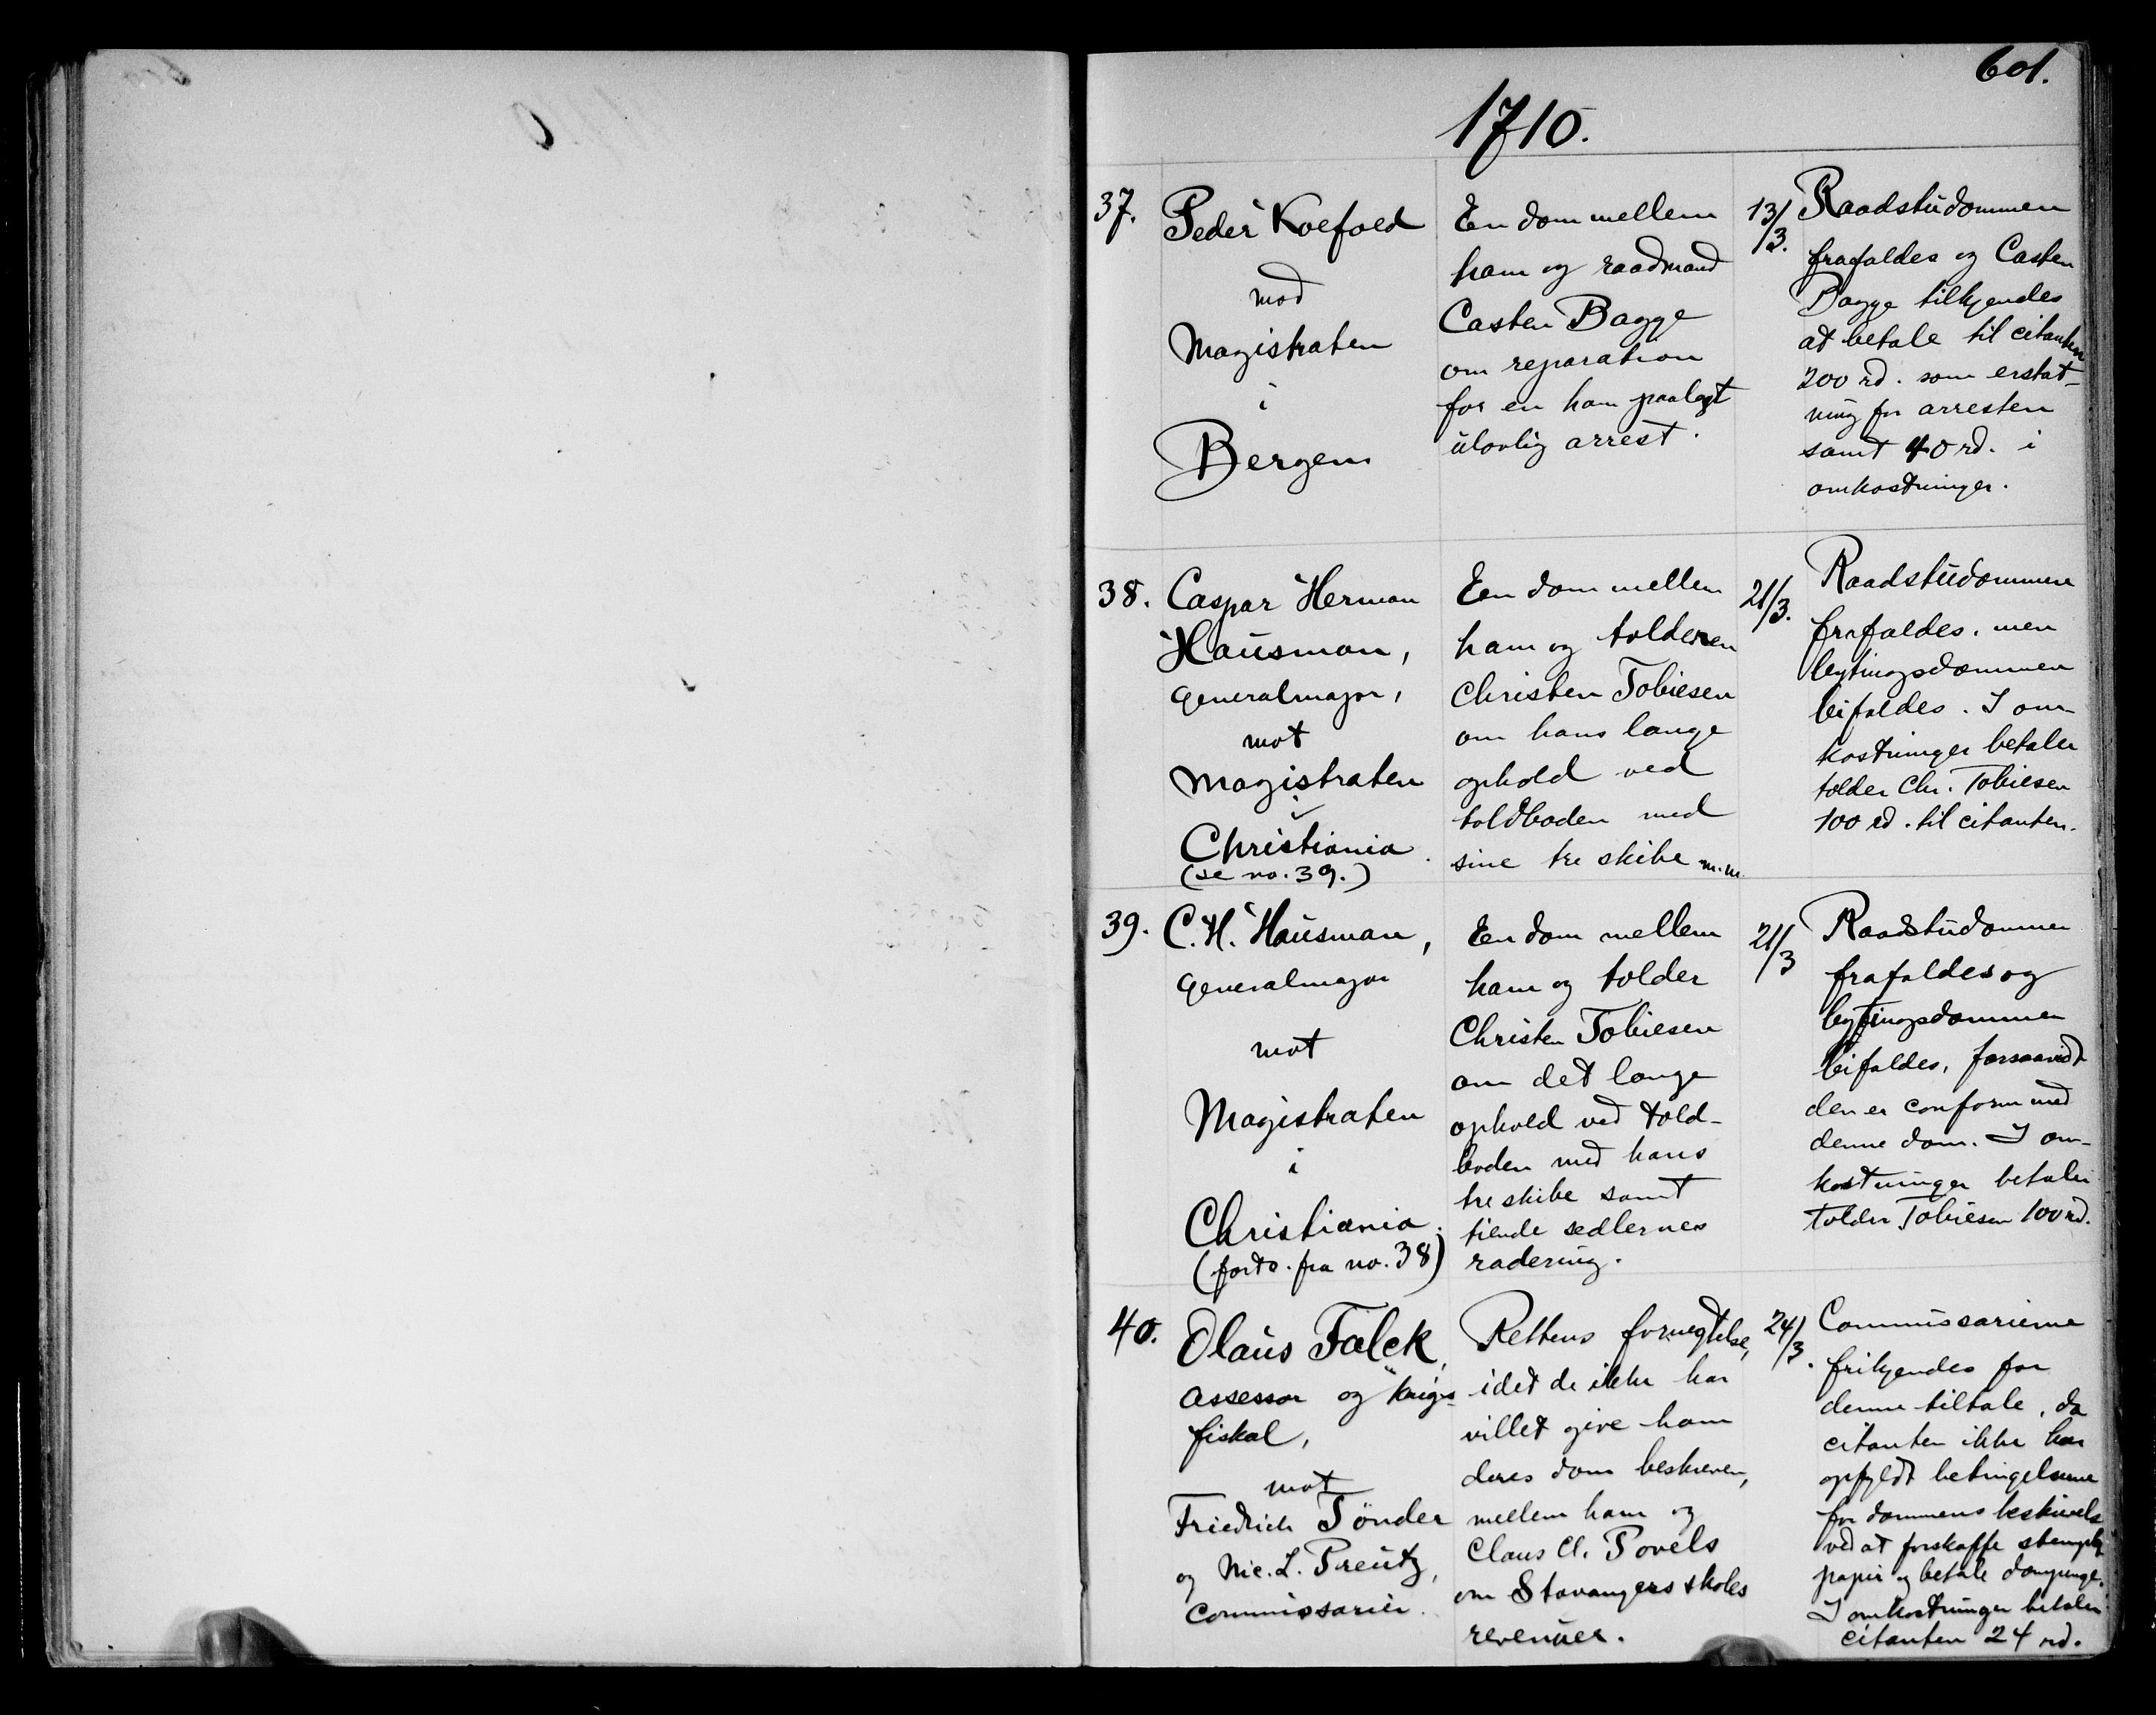 601.
1710.
37.
Peder Koefoed
mod
Magistraten
i
Bergen
En dom mellem
ham og raadmand
Casten Bagge
om reparation
for en ham paalagt
ulovlig arrest.
13/3.
Raadstudommen
frafaldes og Casten
Bagge tilkjendes
at betale til citanten
200 rd. som erstat-
ning for arresten
samt 40 rd. i
omkostninger.
38.
Caspar Herman
Hausman,
generalmajor,
mot
Magistraten
i
Christiania.
(se no. 39.)
Een dom mellem
ham og tolderen
Christen Tobiesen
om hans lange
ophold ved
toldboden med
sine tre skibe m.m.
21/3.
Raadstudommen
frafaldes, men
bytingsdommen
bifaldes. I om-
kostninger betaler
tolder Chr. Tobiesen
100 rd. til citanten.
39.
C. H. Hausman,
generalmajor
mot
Magistraten
i
Christiania.
(forts. fra no. 38)
Een dom mellem
ham og tolder
Christen Tobiesen
om det lange
ophold ved told-
boden med hans
tre skibe samt
tiende sedlernes
radering.
21/3
Raadstudommen
frafaldes og
bytingsdommen
bifaldes, forsaavidt
den er conform med
denne dom. I om-
kostninger betaler
tolder Tobiesen 100 rd.
40.
Olaus Falck,
assessor og krigs-
fiskal,
mot
Friedrich Tönder
og Nic. L. Preutz,
commissarier.
Rettens fornegtelse,
idet de ikke har
villet give ham
deres dom beskreven,
mellem ham og
Claus Cl. Povels
om Stavangers skoles
revenuer.
24/3.
Commissarierne
frikjendes for
denne tiltale, da
citanten ikke har
opfyldt betingelserne
for dommens beskrivelse
ved at forskaffe stemplet
papir og betale dompenge.
I omkostninger betaler
citanten 24 rd.